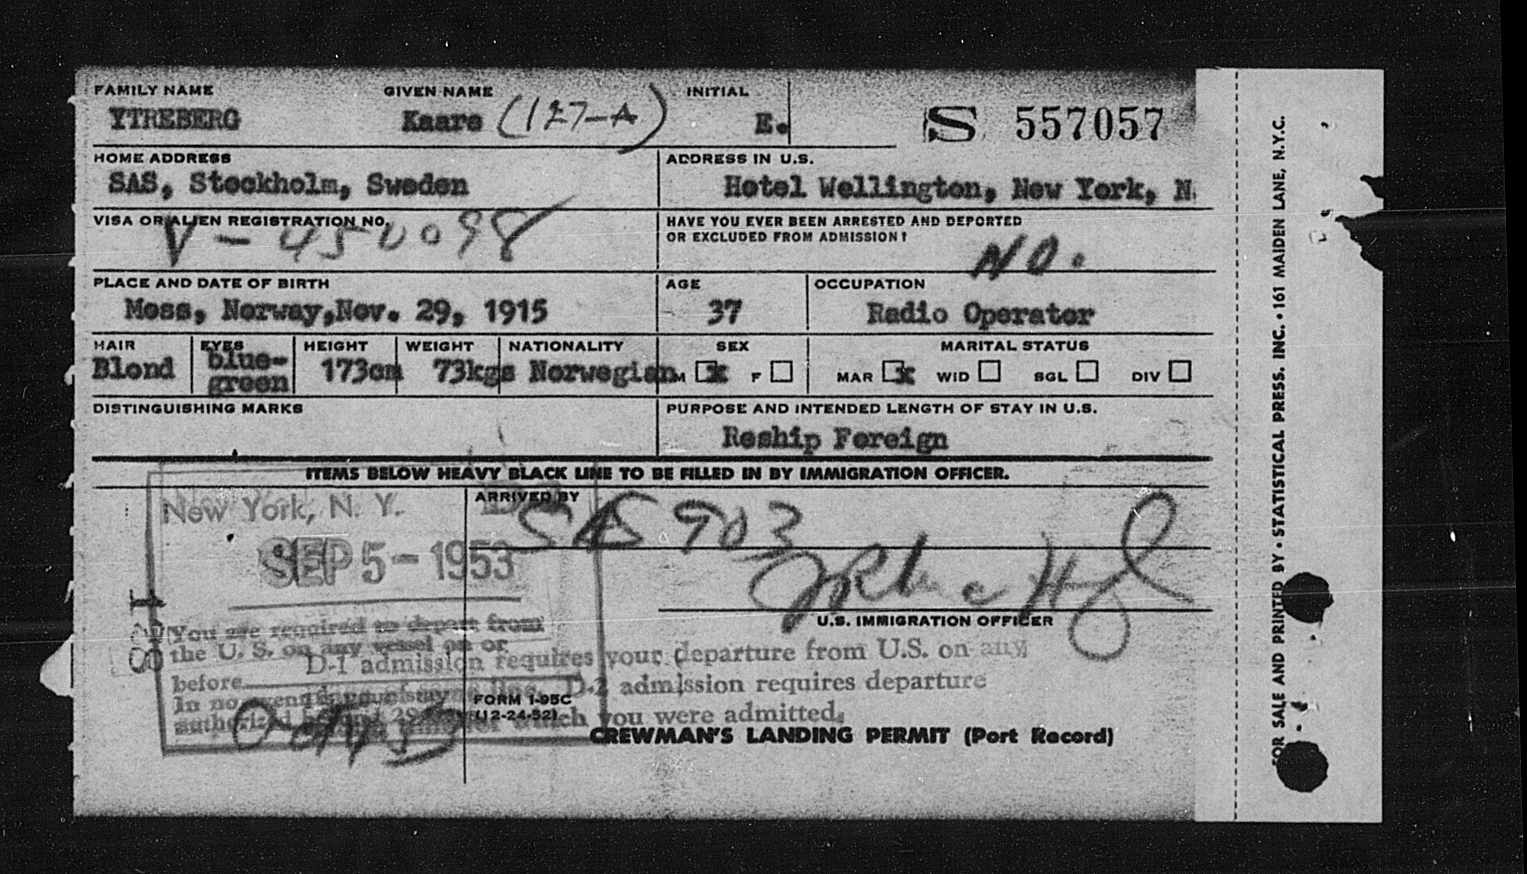 FAMILY NAME GIVEN NAME INITIAL
YTREBERG Kaare (127-A) E. S 557057
HOME ADDRESS ADDRESS IN U.S.
SAS, Stockholm, Sweden Hotel Wellington, New York, N
VISA OR ALIEN REGISTRATION NO. HAVE YOU EVER BEEN ARRESTED AND DEPORTED
OR EXCLUDED FROM ADMISSION?
V-450098 NO.
PLACE AND DATE OF BIRTH AGE OCCUPATION
Moss, Norway,Nov. 29, 1915 37 Radio Operator
HAIR EYES HEIGHT WEIGHT NATIONALITY SEX MARITAL STATUS
Blond blue-
green 173cm 73kgs Norwegian M x F MAR x WID SGL DIV
DISTINGUISHING MARKS PURPOSE AND INTENDED LENGTH OF STAY IN U.S.
Reship Foreign
ITEMS BELOW HEAVY BLACK LINE TO BE FILLED IN BY IMMIGRATION OFFICER.
New York, N. Y. ARRIVED BY
SAS 903
SEP 5-1953
U.S. IMMIGRATION OFFICER
You are required to depart from
the U. S. on any vessel on or
D-1 admission requires your departure from U.S. on any
before
D-2 admission requires departure
In no
FORM I-95C
(12-24-52)
authorized which you were admitted.
CREWMAN'S LANDING PERMIT (Port Record)
FOR SALE AND PRINTED BY • STATISTICAL PRESS. INC. • 161 MAIDEN LANE, N.Y.C.